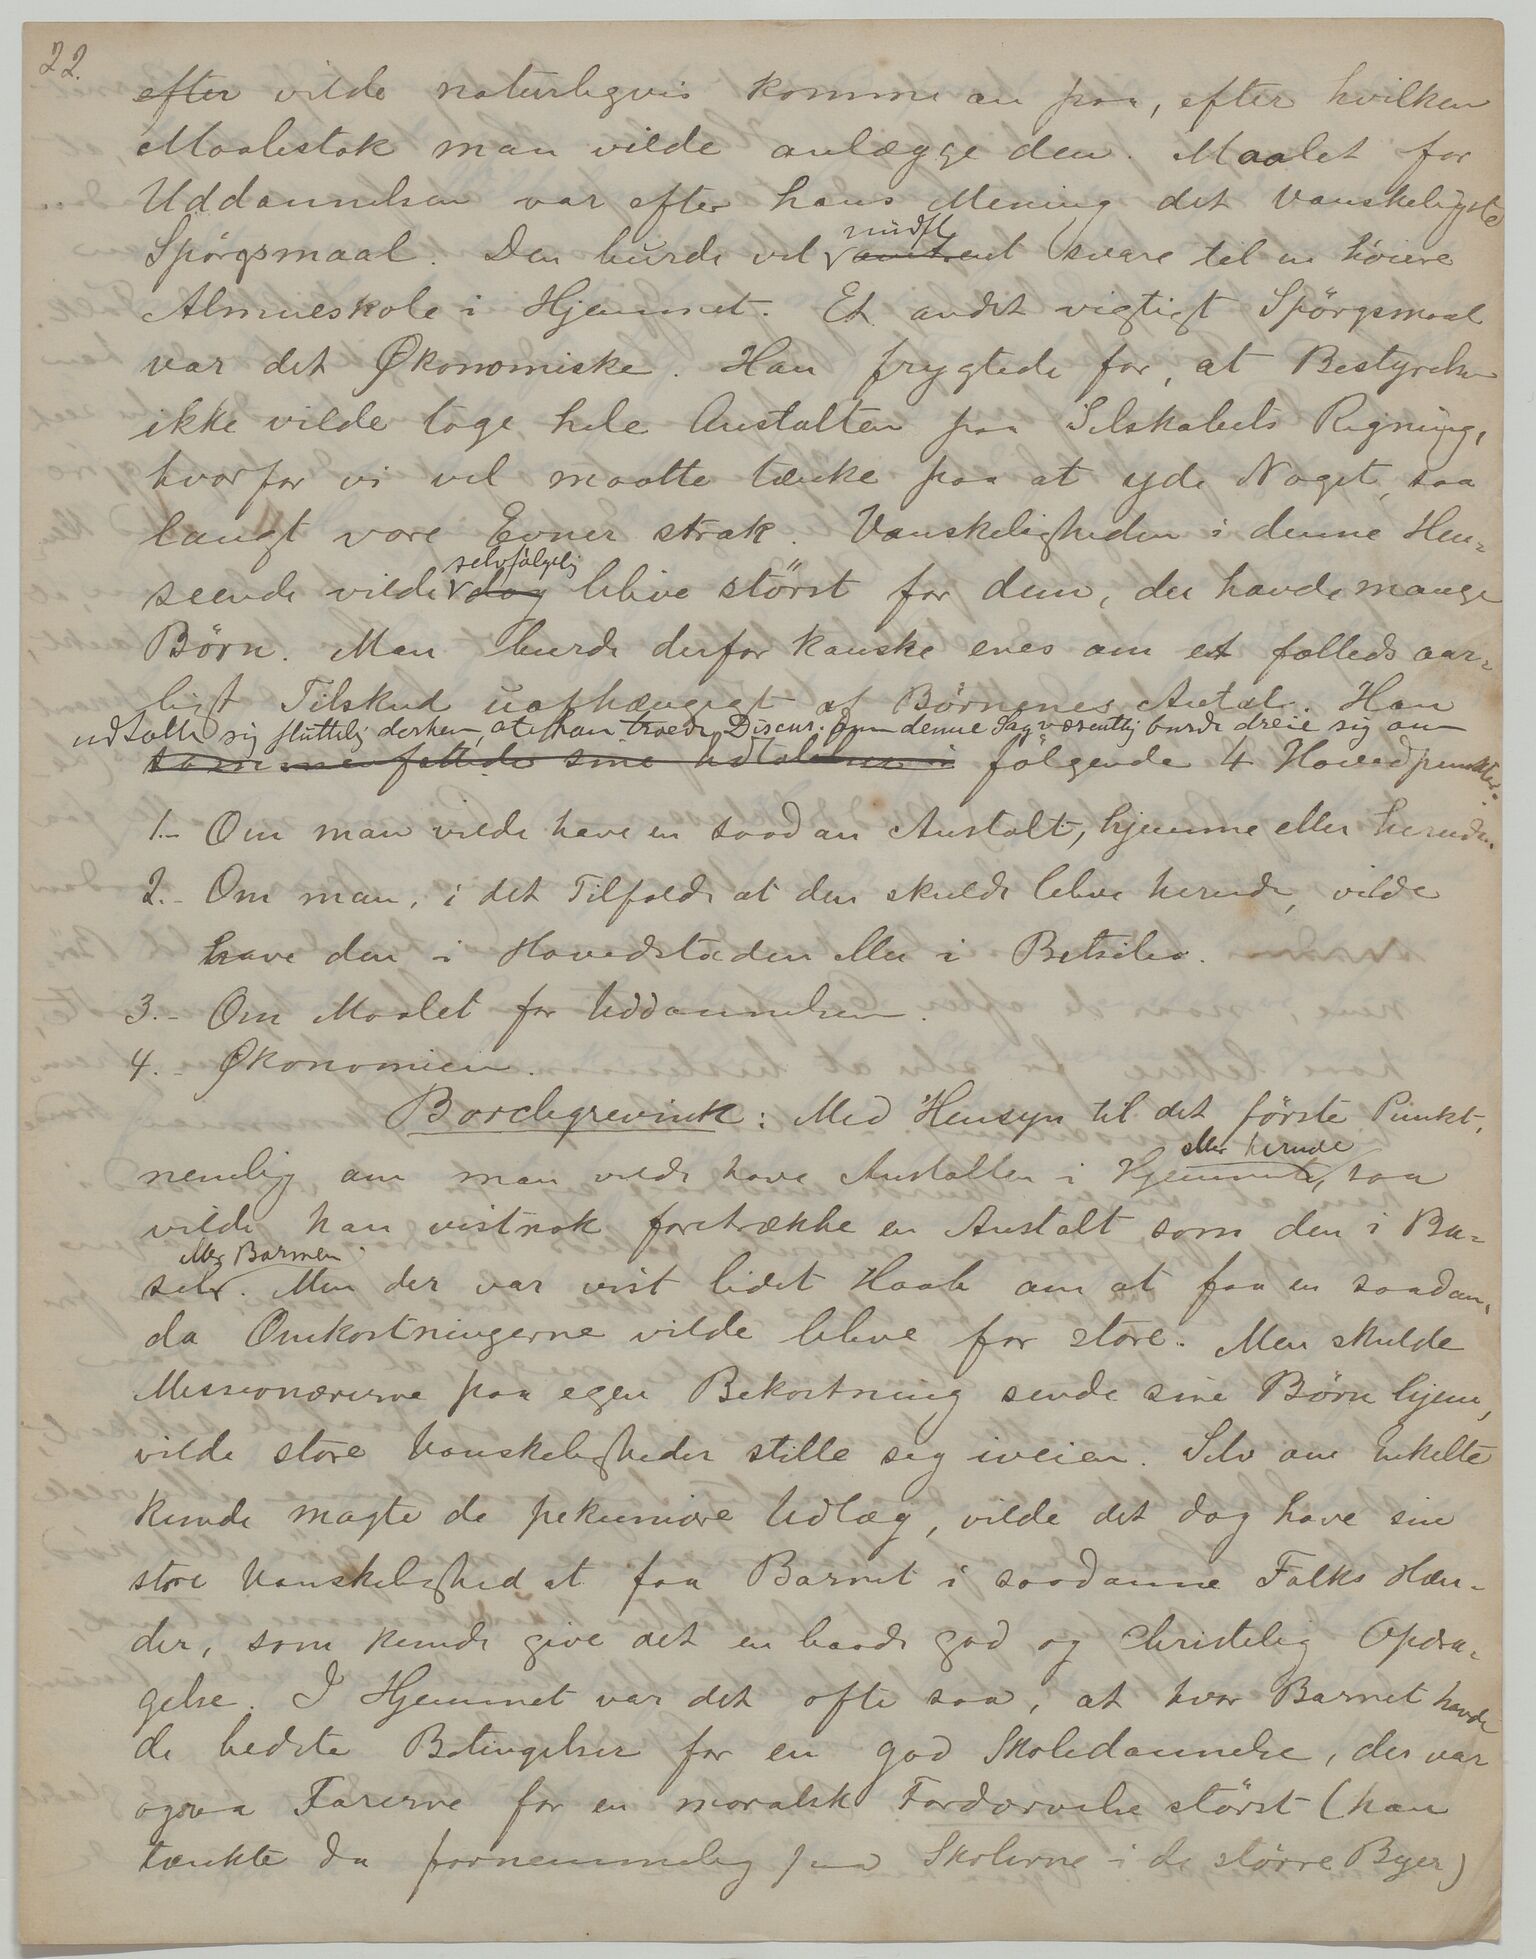 22.
efter vilde naturligvis komme an paa, efter hvilken
Maalestok man vilde anlægge den. Maalet for
Uddannelsen var efter hans Mening det vanskeligste
Spörgsmaal. Den burde vel omtrent svare til en höiere
Almueskole i Hjemmet. Et andet vigtigt Spörgsmaal
var det Økonomiske. Han frygtede for, at Bestyrelsen
ikke vilde tage hele Anstalten paa Selskabets Regning,
hvorfor vi vel maatte tænke paa at yde Noget, saa
langt vore Evner strak. Vanskeligheden i denne Hen-
selvfölgelig
seende vilde dog blive störst for dem, der havde mange
Börn. Man burde derfor kanske enes om et fælleds aar-
ligt Tilskud uafhængigt af Börnenes Antal. Han
udtalte sig sluttelig derhen, at han troede, Discus. om denne Sag væsentlig burde dreie sig om
sammenfattede sine Udtalelser i fölgende 4 Hovedpunkter:
1.- Om man vilde have en saadan Anstalt, hjemme eller herude.
2.- Om man, i det Tilfælde at den skulde blive herude, vilde
have den i Hovedstaden eller i Betsileo.
3.- Om Maalet for Uddannelsen.
4.- Økonomien.
Borchgrevink: Med Hensyn til det förste Punkt,
eller herude
nemlig om man vilde have Anstalten i Hjemmet, saa
vilde han vistnok foretrække en Anstalt som den i Ba-
eller Barmen
sel. Men der var vist lidet Haab om at faa en saadan,
da Omkostningerne vilde blive for store. Men skulde
Missionærerne paa egen Bekostning sende sine Börn hjem,
vilde store Vanskeligheder stille sig iveien. Selv om Enkelte
kunde magte de pekuniære Udlæg, vilde det dog have sin
store Vanskelighed at faa Barnet i saadanne Folks Hæn-
der, som kunde give det en baade god og christelig Opdra-
gelse. I Hjemmet var det ofte saa, at hvor Barnet havde
de bedste Betingelser for en god Skoledannelse, der var
ogsaa Farerne for en moralsk Fordærvelse störst (han
tænkte da fornemmelig paa Skolerne i de större Byer)